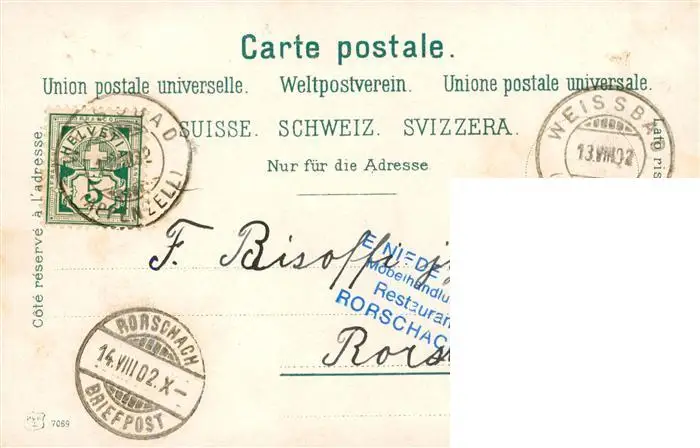 Carte postale.
Union postale universelle. Weltpostverein. Unione postale universale.
SUISSE. SCHWEIZ. SVIZZERA.
Nur für die Adresse
Côté réservé à l'adresse.
Lato ris
HELVETIA
5
BAD
APPENZELL
WEISSBA
13.VIII.02
F. Bisoffi
E. NIEDE
Möbelhandlu
Restauran
RORSCHAC
Rors
RORSCHACH
14.VIII.02.X-
BRIEFPOST
7069